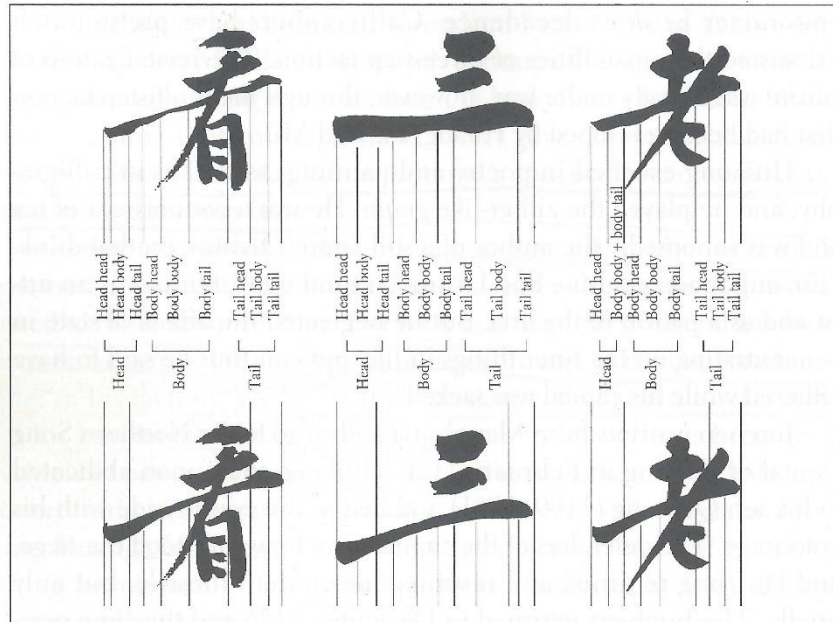 看
三
老
Head head
Head body
Head tail
Body head
Body body
Body tail
Tail head
Tail body
Tail tail
Head
Body
Tail
Head head
Head body
Head tail
Body head
Body body
Body tail
Tail head
Tail body
Tail tail
Head
Body
Tail
Head head
Body body + body tail
Body head
Body body
Body tail
Tail head
Tail body
Tail tail
Head
Body
Tail
看
三
老